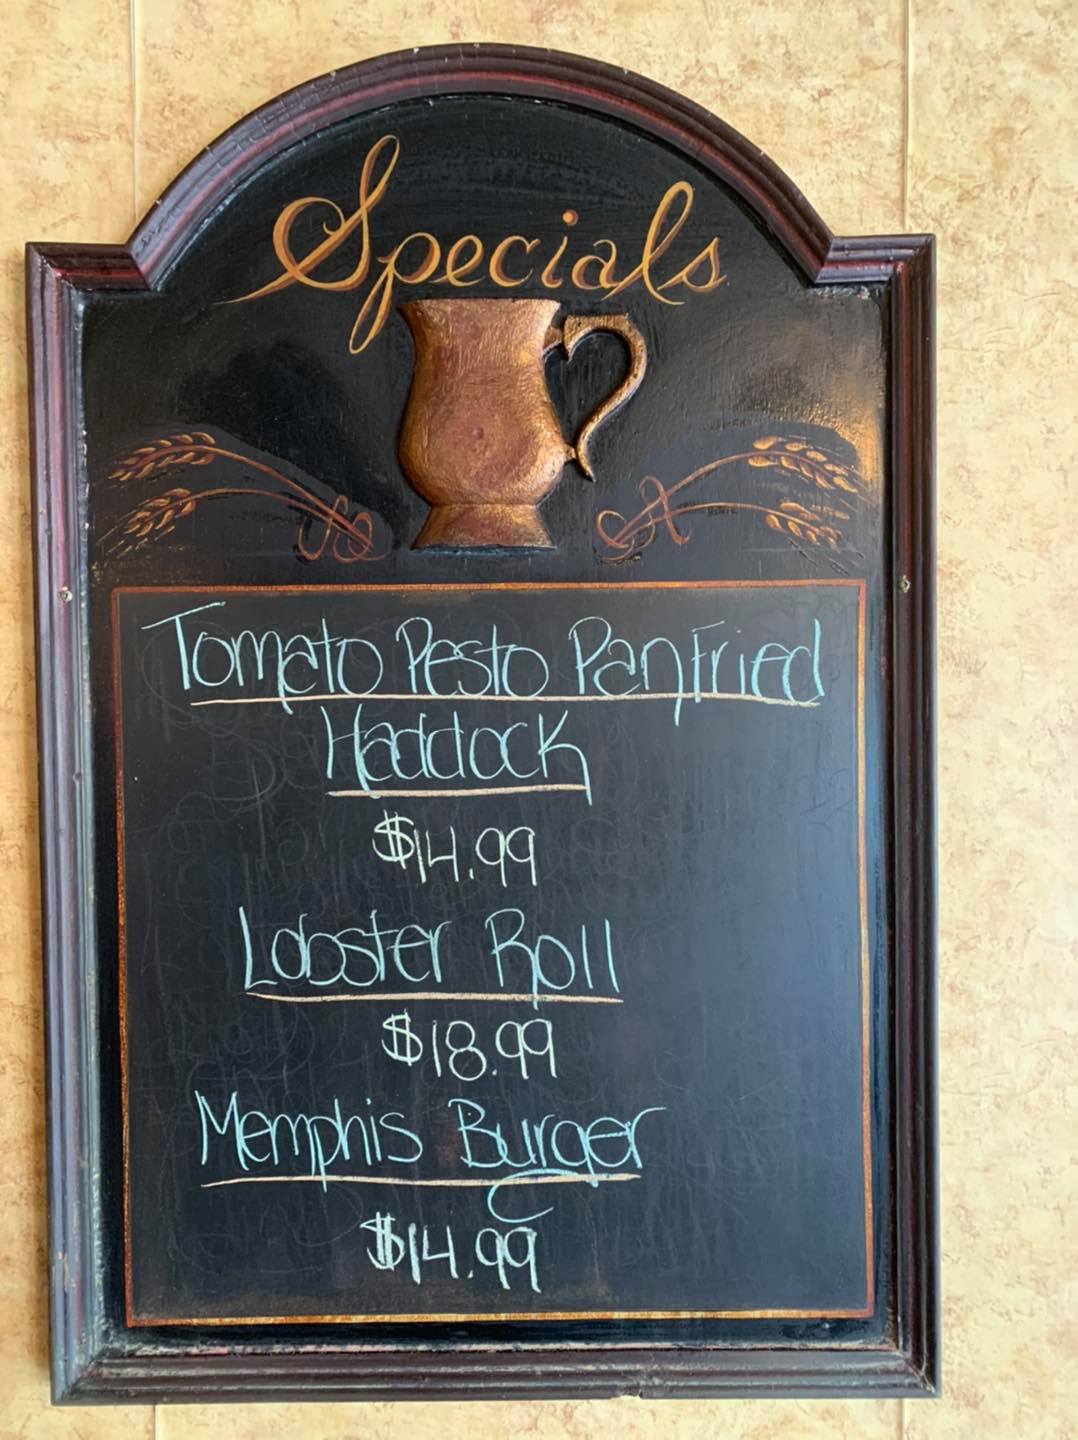 Specials
Tomato Pesto Pan Fried
Haddock
$14.99
Lobster Roll
$18.99
Memphis Burger
$14.99